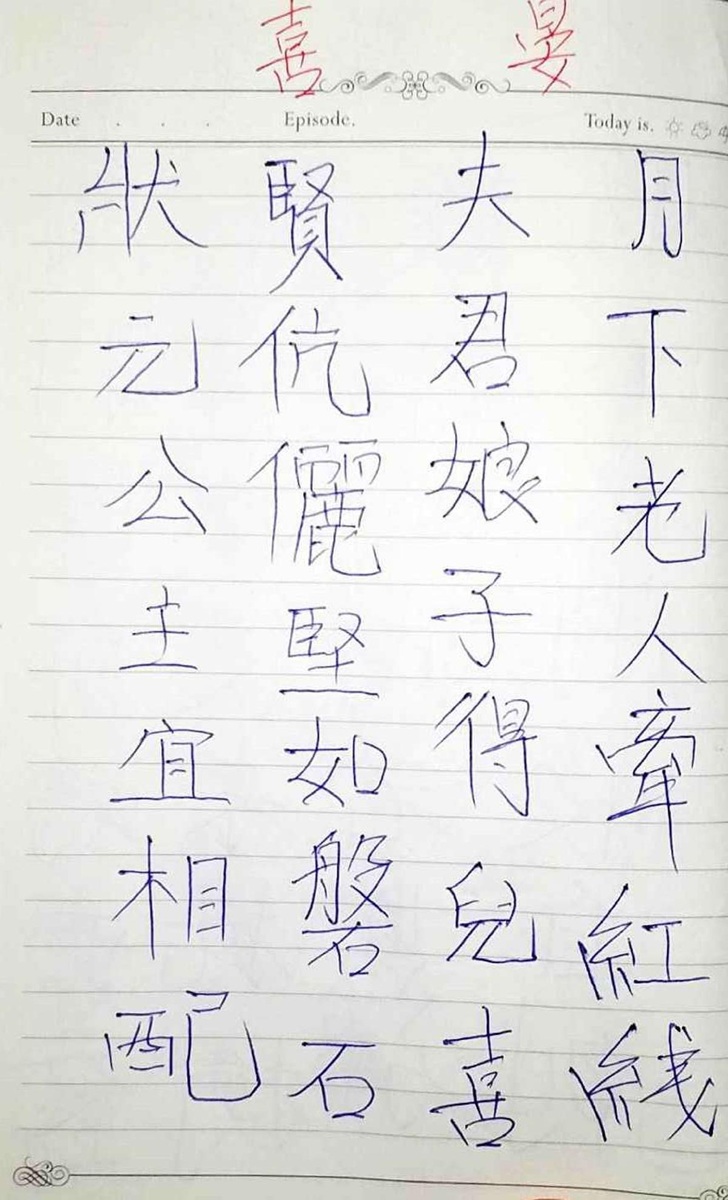 喜
Date . . . Episode. Today is.
月下老人牽紅线
夫君娘子得兒喜
賢伉儷堅如磐石
狀元公主宜相配